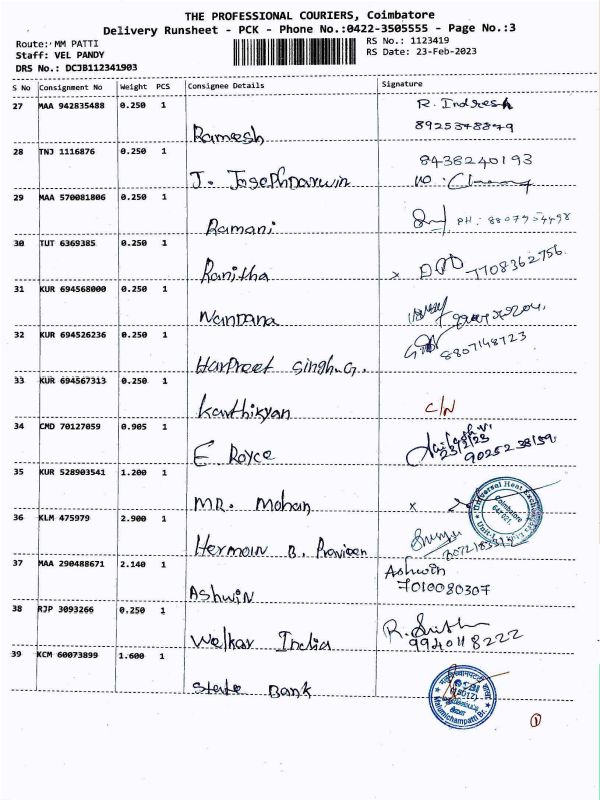 THE PROFESSIONAL COURIERS, Coimbatore
Delivery Runsheet - PCK - Phone No.:0422-3505555 - Page No.:3
Route: MM PATTI
RS No.: 1123419
Staff: VEL PANDY
RS Date: 23-Feb-2023
DRS No.: DCJB112341903
S No Consignment No Weight PCS Consignee Details Signature
27 MAA 942835488 0.250 1 R. Indresh
Ramesh
28 TNJ 1116876 0.250 1 8438240193
J. Josephdarwin
29 MAA 570081806 0.250 1
Ramani PH:
30 TUT 6369385 0.250 1
Ranitha x 7708362756
31 KUR 694568000 0.250 1
Nandana
32 KUR 694526236 0.250 1
Harpreet Singh.G. 8807148723
33 KUR 694567313 0.250 1
Karthikyan C/N
34 CMD 70127059 0.905 1
E. Royce 23/2/23
35 KUR 528903541 1.200 1
MR. Mohan x
Universal Heat
Coimbatore
36 KLM 475979 2.900 1
Hermoin B. Pravieen
37 MAA 290488671 2.140 1 Ashwin
7010080307
Ashwin
38 RJP 3093266 0.250 1
Welkar India 9940118222
39 KCM 60073899 1.600 1
State Bank
Malumichampatti Br.
1